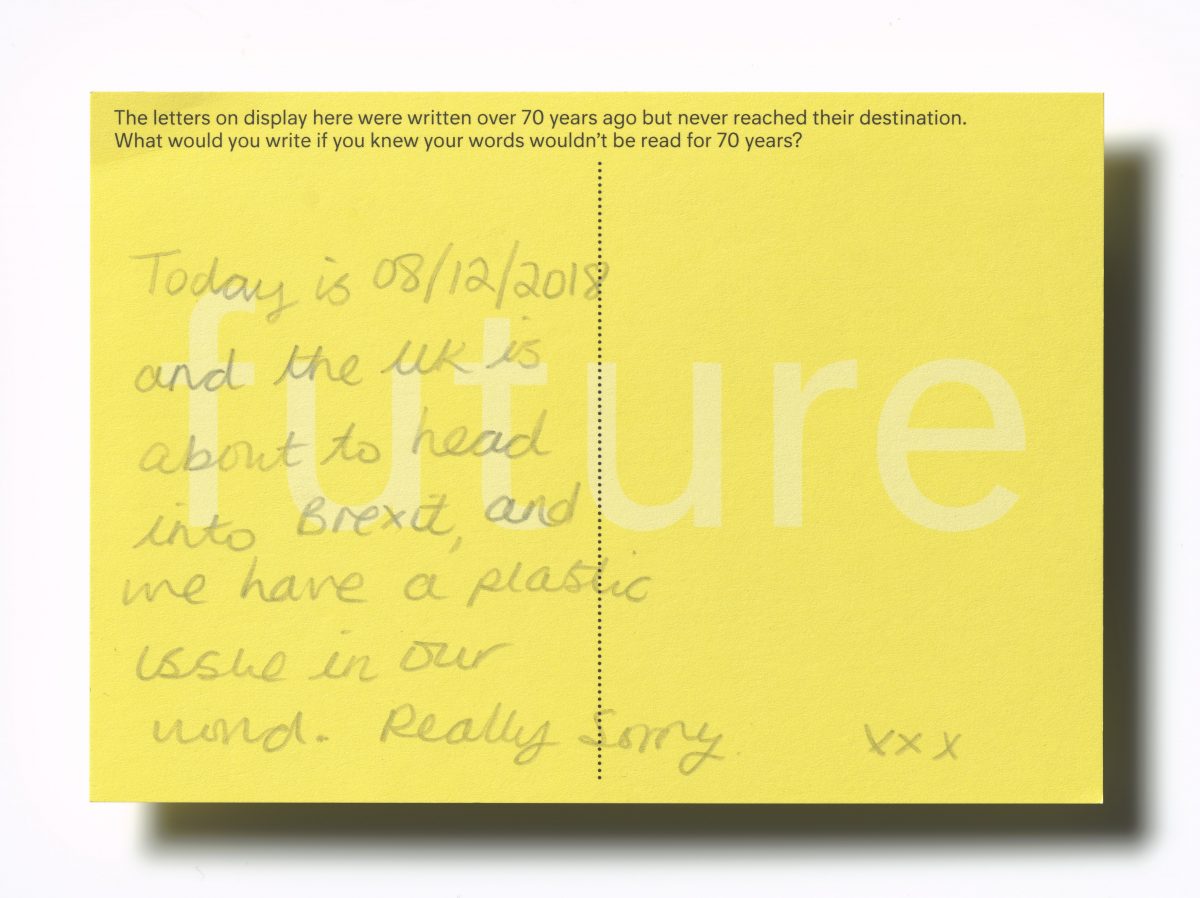 The letters on display here were written over 70 years ago but never reached their destination.
What would you write if you knew your words wouldn't be read for 70 years?
future
Today is 08/12/2018
and the UK is
about to head
into Brexit, and
we have a plastic
issue in our
world. Really Sorry. xxx